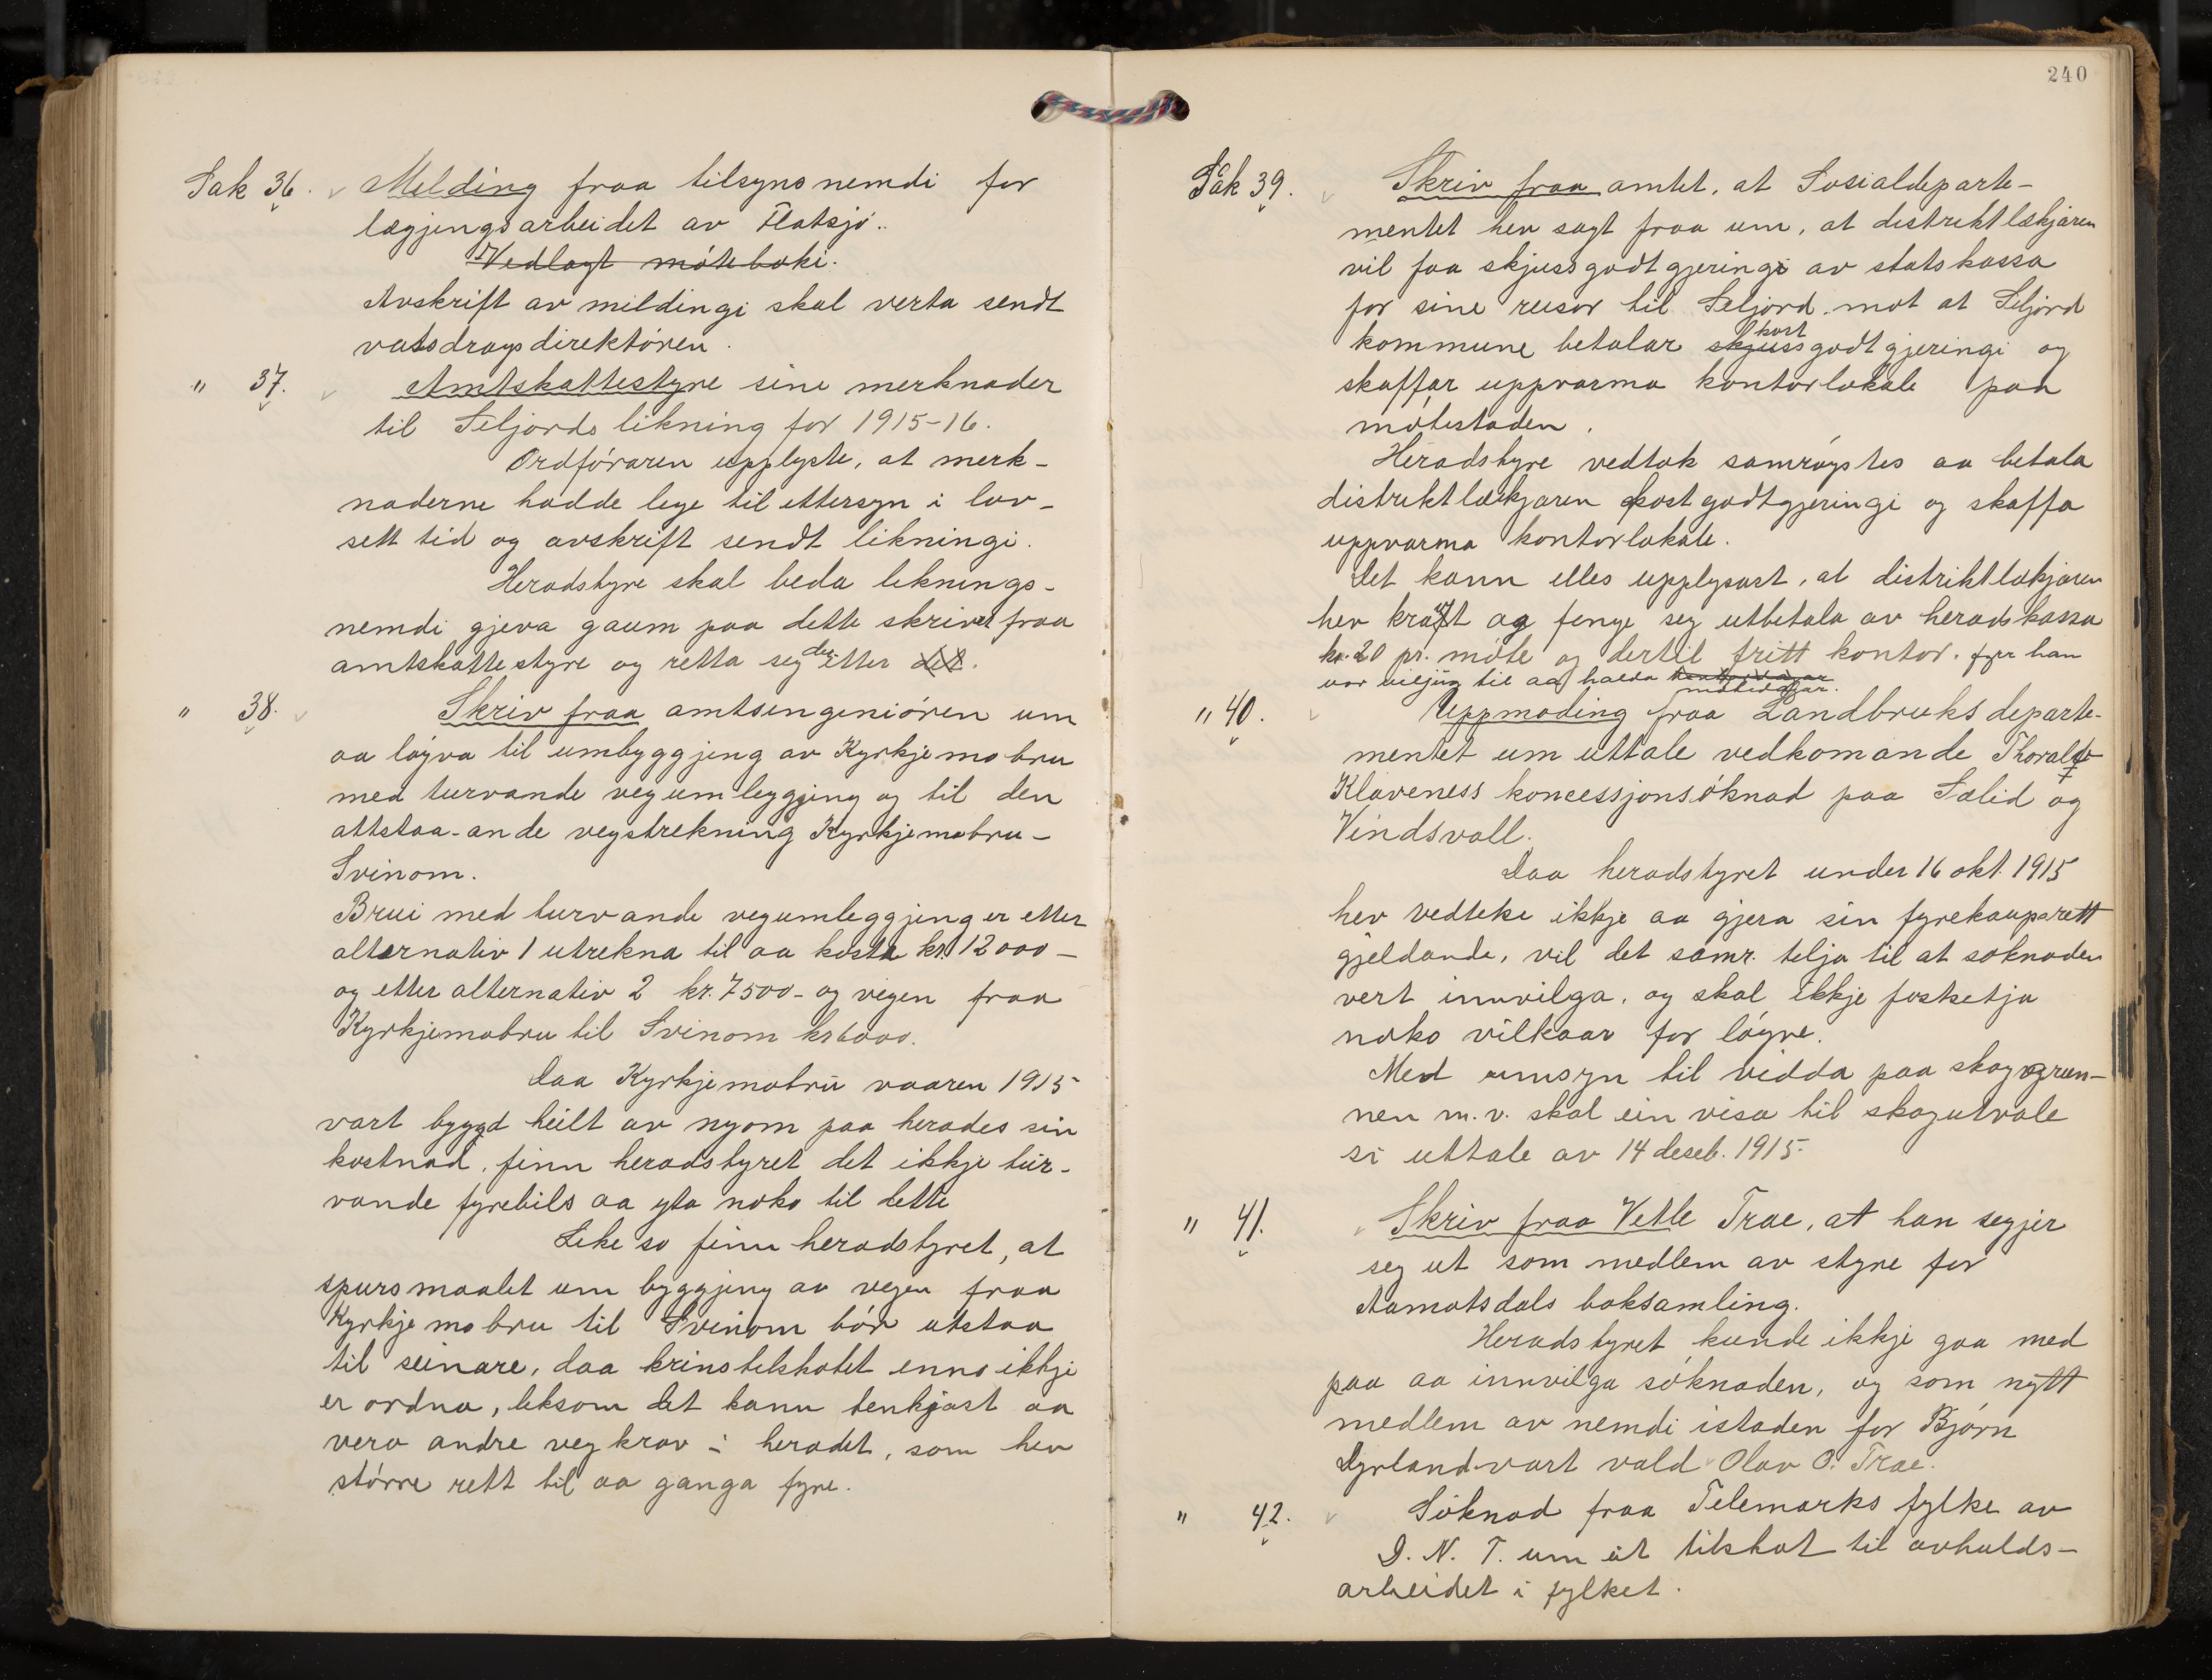 Sak 36. Melding fraa tilsynsnemdi for
lægjingsarbeidet av Flatsjó.
Vedlagt mótebóki.
Avskrift av mildingi skal verta sendt
vatsdragsdirektóren.
" 37. Amtskattestyre sine merknader
til Seljords likning for 1915-16.
Ordfóraren upplyste, at merk-
naderne hadde lege til ettersyn i lov-
sett tid og avskrift sendt likningi.
Heradstyre skal beda leknings-
nemdi gjeva gaum paa dette skrivet fraa
amtskattestyre og retta seg der etter det.
" 38. Skriv fraa amtsingenióren um
aa lóyva til umbyggjing av Kyrkjemobru
med turvande vegumleggjing og til den
attstaa-ande vegstrekning Kyrkjemobru-
Svinom.
Brui med turvande vegumleggjing er etter
alternativ 1 utrekna til aa kosta kr. 12000-
og etter alternativ 2 kr. 7500- og vegen fraa
Kyrkjemobru til Svinom kr 6000.
Daa Kyrkjemobru vaaren 1915
vart byggd heilt av nyom paa herades sin
kostnad, finn heradstyret det ikkje tur-
vande fyrebils aa yta noko til dette
Leke so finn heradstyret, at
spursmaalet um byggjing av vegen fraa
Kyrkjemobru til Svinom bór utstaa
til seinare, daa krinstilskotet enno ikkje
er ordna, liksom det kann tenkjast aa
vera andre vegkrav i heradet, som hev
stórre rett til aa ganga fyre.
240
Sak 39. Skriv fraa amtet, at Sosialdeparte-
mentet hev sagt fraa um, at distriktlækjaren
vil faa skjussgodtgjering av statskassa
for sine reisor til Seljord mot at Seljord
kommune betalar skjuss kost godtgjeringi og
skaffar uppvarma kontorlokale paa
mótestaden.
Heradstyre vedtok samróystes aa betala
distriktlækjaren kostgodtgjeringi og skaffa
uppvarma kontorlokale.
Det kann elles upplysast, at distriktlækjaren
hev kravt og fenge seg utbetala av heradskassa
kr. 20 pr. móte og dertil fritt kontor. fyrr han
var viljug til aa halda kontordagar
mótedagar.
" 40. Uppmoding fraa Landbruksdeparte-
mentet um uttale vedkomande Thoralf
Klaveness koncessjonsóknad paa Sælid og
Vindsvoll.
Daa heradstyret under 16 okt. 1915
hev vedteke ikkje aa gjera sin fyrekaupsrett
gjeldande, vil det samr. telja til at soknaden
vert innvilga, og skal ikkje fastsetja
noko vilkaar for lóyve.
Med umsyn til vidda paa skoggrun-
nen m.v. skal ein visa til skogutvale
si uttale av 14 deseb. 1915.
" 41. Skriv fraa Vetle Trae, at han segjer
seg ut som medlem av styre for
Aamotsdals boksamling.
Heradstyret kunde ikkje gaa med
paa aa innvilga sóknaden, og som nytt
medlem av nemdi istaden for Bjórn
Dyrland vart vald Olav O. Trae.
" 42. Sóknad fraa Telemarks fylke av
D. N. T. um eit tilskot til avhalds-
arbeidet i fylket.